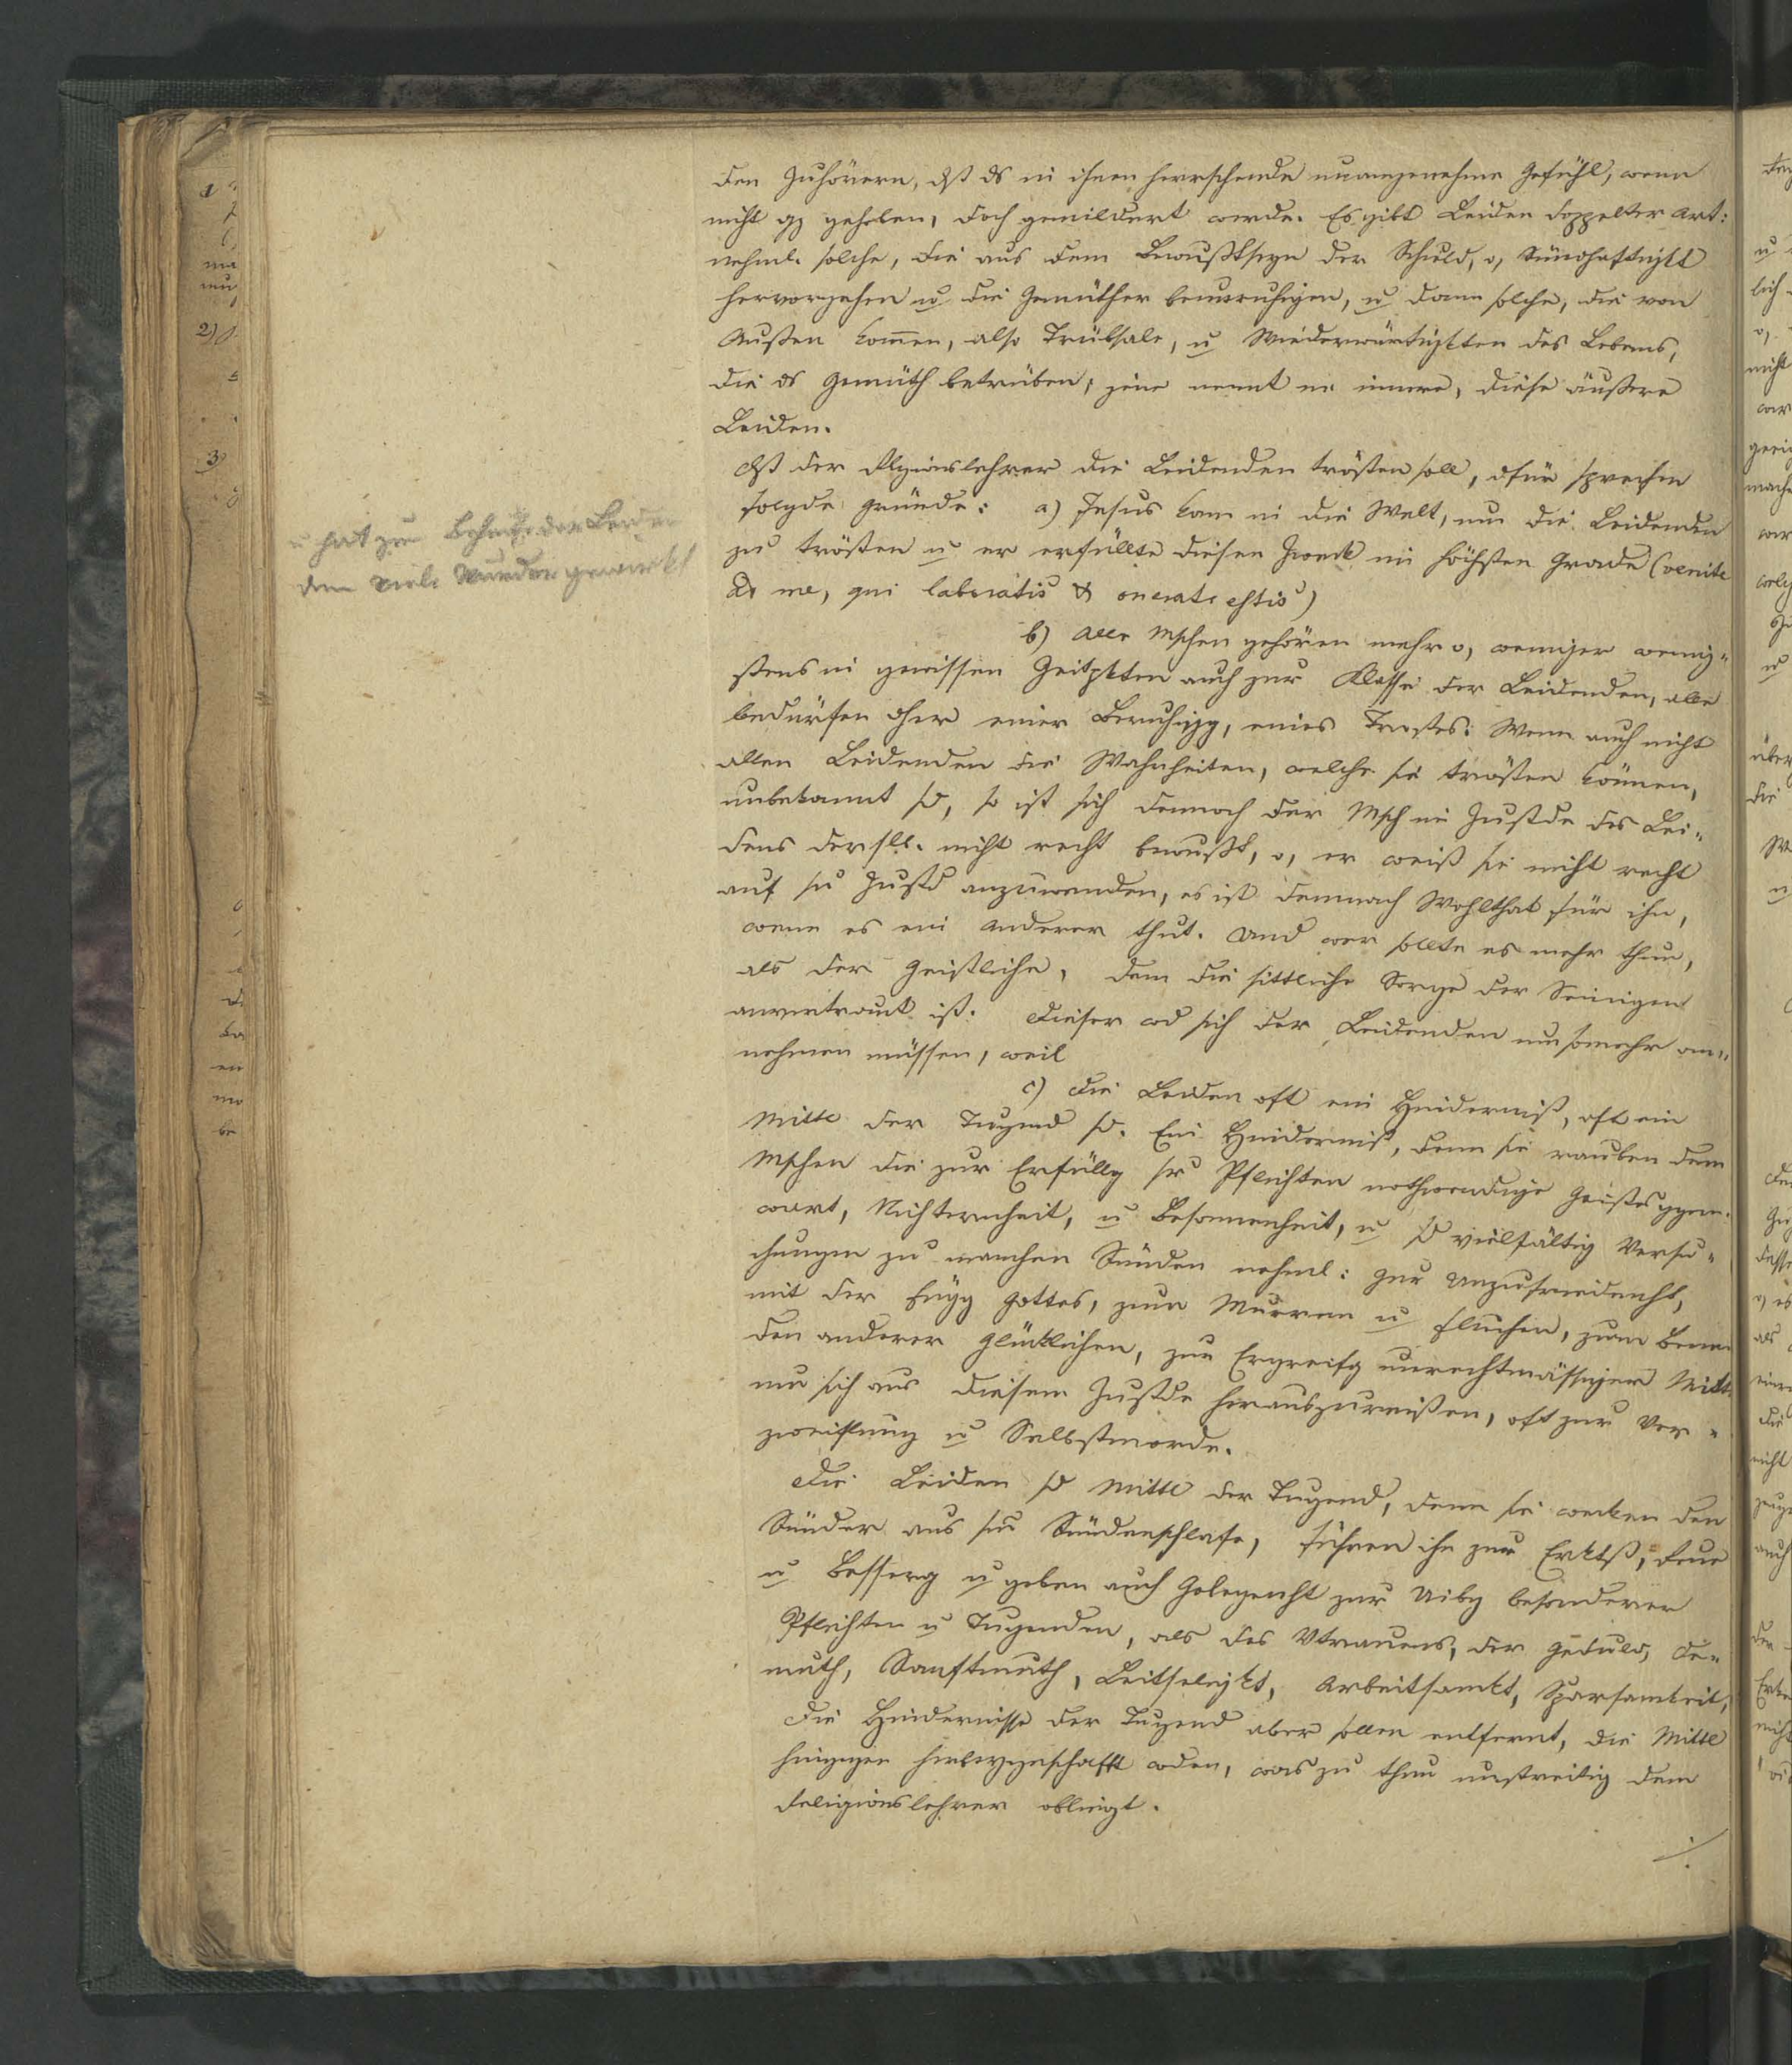 den Zuhörern, dß ds in ihnen herrschende unangenehme Gefühl, wenn
nicht gz gehoben, doch gemildert werde. Es gibt Leiden doppelter Art:
nehml. solche, die aus dem Bewußtseyn der Schuld, o, Sündhaftigkt
hervorgehen u die Gemüther beunruhigen, u dann solche, die von
Außen kom̄en, also Trübsale, u Wiederwärtigktten des Lebens,
die ds Gemüth betrüben; jene nennt m innere, diese äußere
Leiden.
dß der Rlgionslehrer die Leidenden trösten soll, dfür sprechen
folgde Gründe: a) Jesus kam in die Welt, um die Leidenden
zu trösten u er erfüllte diesen Zweck im höchsten Grade (venite
ad me, qui laboratis & onerati estis)
u hat zum Behufe der Leiden
den viele Wunder gewirkt
b) Alle Mschen gehören mehr o, weniger wenig-
stens in gewissen Zeitpktten auch zur Klasse der Leidenden, alle
bedürfen dher einer Beruhigg, eines Trostes: Wenn auch nicht
allen Leidenden die Wahrheiten, welche sie trösten können,
unbekannt sd, so ist sich dennoch der Msch im Zustde des Lei-
dens dersllb. nicht recht bewußt, o, er weiß sie nicht recht
auf sn Zustd anzuwenden, es ist demnach Wohlthat für ihn,
wenn es ein Anderer thut. Und wer sollte es mehr thun,
als der Geistliche, dem die sittliche Sorge der Seinigen
anvertraut ist. Dieser wd sich der Leidenden um somehr an-
nehmen müssen, weil
c) die Leiden oft ein Hinderniß, oft ein
Mittel der Tugend sd. Ein Hinderniß, denn sie rauben dem
Mschen die zur Erfüllg sr Pflichten nothwendige Geistesggen-
wart, Nüchternheit, u Besonnenheit, u sd vielfältig Versu-
chungen zu manchen Sünden nehml: zur Unzufriedenht,
mit der Függ Gottes, zum Murren u Fluchen, zum Benei
den anderer Glücklichen, zur Ergreifg unrechtmässiger Mitt.
um sich aus diesem Zustde herauszureißen, oft zur Ver-
zweiflung u Selbstmorde.
Die Leiden sd Mittl der Tugend, denn sie wecken den
Sünder aus sm Sündenschlafe, führen ihn zur Erktß, Reue
u Besserg u geben auch Gelegenht zur Uibg besonderer
Pflichten u Tugenden, als des Vtrauens, der Geduld, De-
muth, Sanftmuth, Leitseligkt, Arbeitsamkt, Sparsamkeit,
Die Hindernisse der Tugend aber sollen entfernt, die Mittl
hingegen herbeygeschafft wden, was zu thun unstreitig dem
Religionslehrer obliegt.